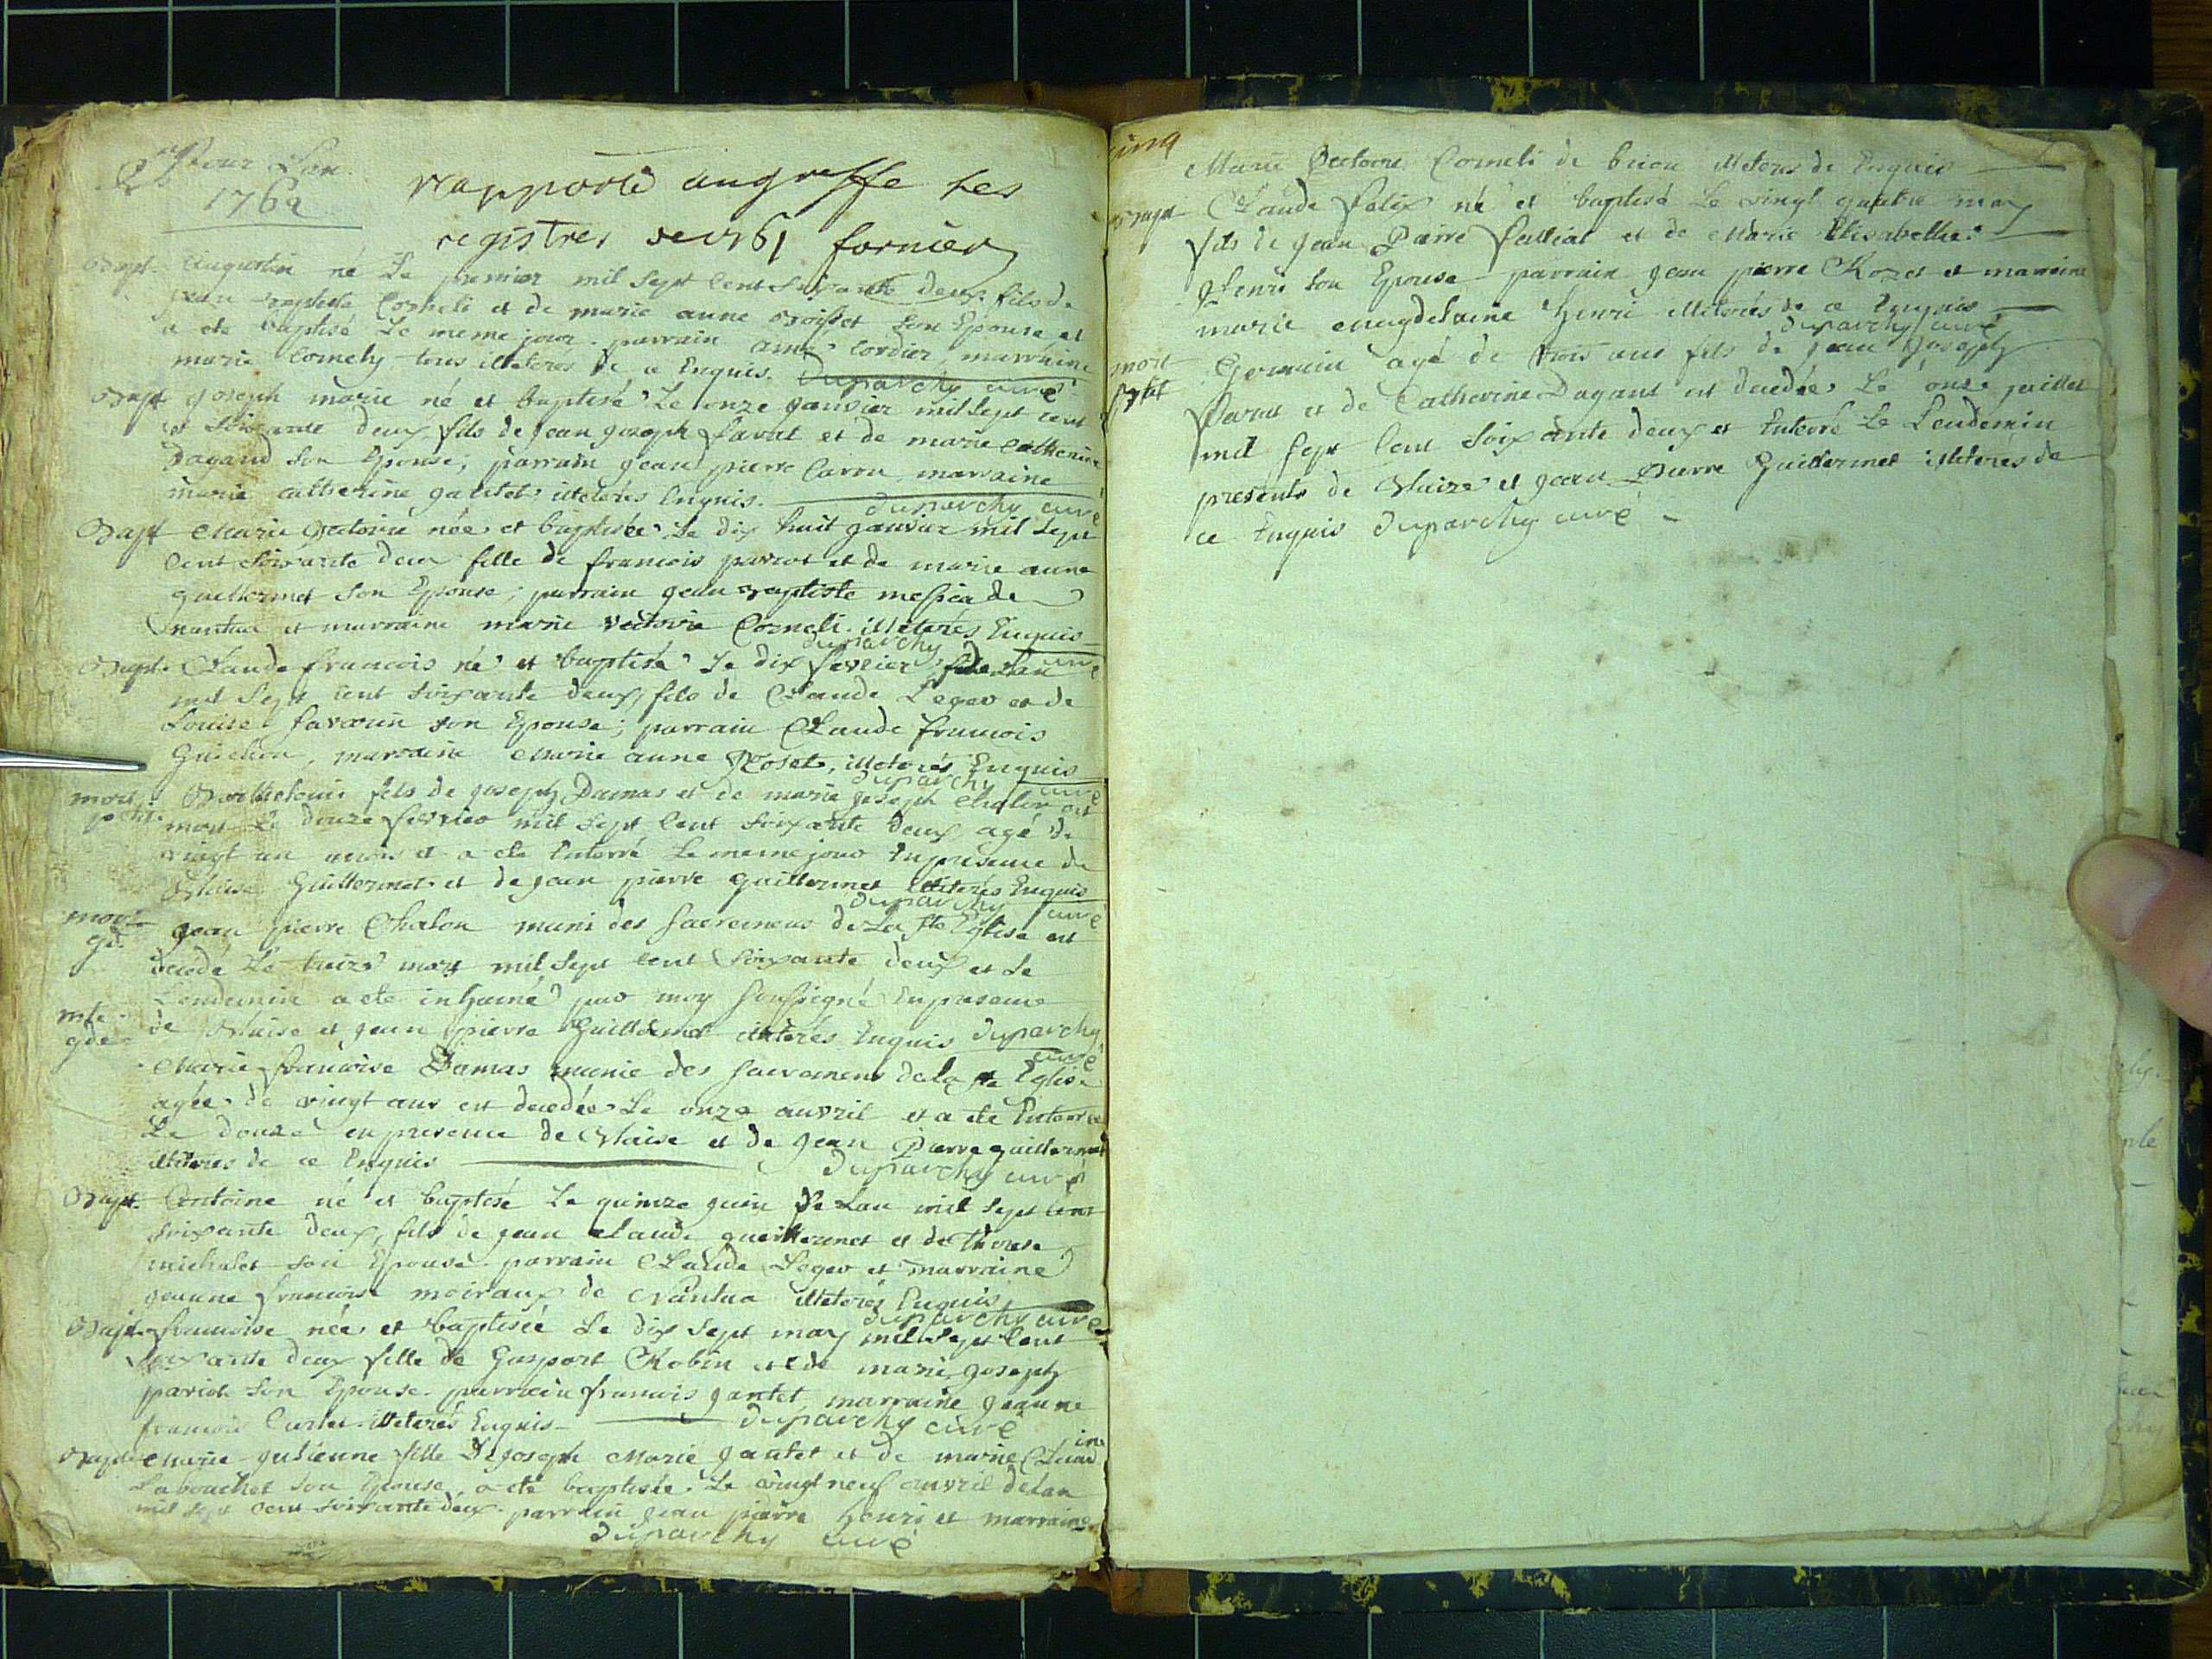 Pour Lan
1762
rapporté augreffe les
registres de 1761 fornier
Bapt. Augustin né Le premier mil sept Cent soixante deux fils de
jean baptiste Corneli et de marie anne Boisset son Epouse et
a ete baptisé Le meme jour. parrain aimé Cordier, marraine
marie Cornely tous illiterés de ce Enquis. Duparchy curé
Bapt joseph marie né et baptisé Le onze janvier mil sept cent
et soixante deux, fils de jean joseph favut et de marie Catherine
Dagand son Epouse; parrain jean pierre Carru marraine
marie catherine gautet illiterés Enquis. duparchy curé
Bapt Marie Victoire née et baptisée Le dix huit janvier mil sept
Cent soixante deux fille de francois parrot et de marie anne
guillermet son Epouse; parrain jean baptiste de
nantua et marraine marie victoire Corneli. illiterés Enquis
duparchy curé
Bapt. Claude francois né et baptisé Le dix fevrier de Lan
mil sept cent soixante deux, fils de Claude Leger et de
Louise favorin son Epouse; parrain Claude francois
Guichon, marraine Marie anne Roset, illiterés Enquis
duparchy curé
mort petit. Barthelemi fils de joseph Dumas et de marie joseph Chalon est
mort Le douze fevrier mil sept Cent soixante deux agé de
vingt un mois et a ete Enterré Le meme jour En presence de
Blaise Guillermet et de jean pierre guillermet illiterés Enquis
duparchy curé
mort gd. jean pierre Chalon muni des sacremens de La ste Eglise est
decedé Le treize mars mil sept cent soixante deux et Le
Lendemin a ete inhumé par moy soussigné En presence
de Blaise et jean pierre Guillermet illiterés Enquis duparchy
curé
mte gde Marie francoise Damas munie des sacremens de la ste Eglise
agée de vingt ans est decedée Le onze auvril et a ete Enterrée
Le douze en presence de Blaise et de jean Pierre guillermet
illiterés de ce Enquis duparchy curé
Bapt. Antoine né et baptisé Le quinze juin de Lan mil sept cent
soixante deux, fils de jean claude guillermet et de therese
michalet son Epouse. parrain Claude Leger et marraine
jeanne francoise moiraux de Nantua illiterés Enquis
duparchy curé
Bapt. francoise née et baptisée Le dix sept may mil sept Cent
soixante deux fille de Gaspart Robin et de marie joseph
pariod son Epouse. parrain francois gantet, marraine jeanne
francoise Curtet illiterés Enquis duparchy curé
Bapt Marie julienne fille De joseph Marie gautet et de marie Claudine
Labouchet son Epouse, a été baptisée. Le vingt neuf auvril de Lan
mil sept cent soixante deux. parrain jean pierre Henri et marraine
duparchy curé
cinq
Marie Victoire Corneli de brion illiterés de Enquis
Bapt Claude Felix né et baptisé Le vingt quatre may
fils de jean Pierre Falliat et de Marie Elisabethe
Henri son Epouse parrain jean pierre Rozet et marraine
marie magdelaine Henri illiterés de ce Enquis
duparchy curé
mort petit Germain agé de trois ans fils de jean Joseph
Favut et de Catherine Dagant est decedé. Le onze juillet
mil sept Cent soixante deux et Enterré Le Lendemin
presents de Blaize et jean Pierre Guillermet illiterés de
ce Enquis duparchy curé